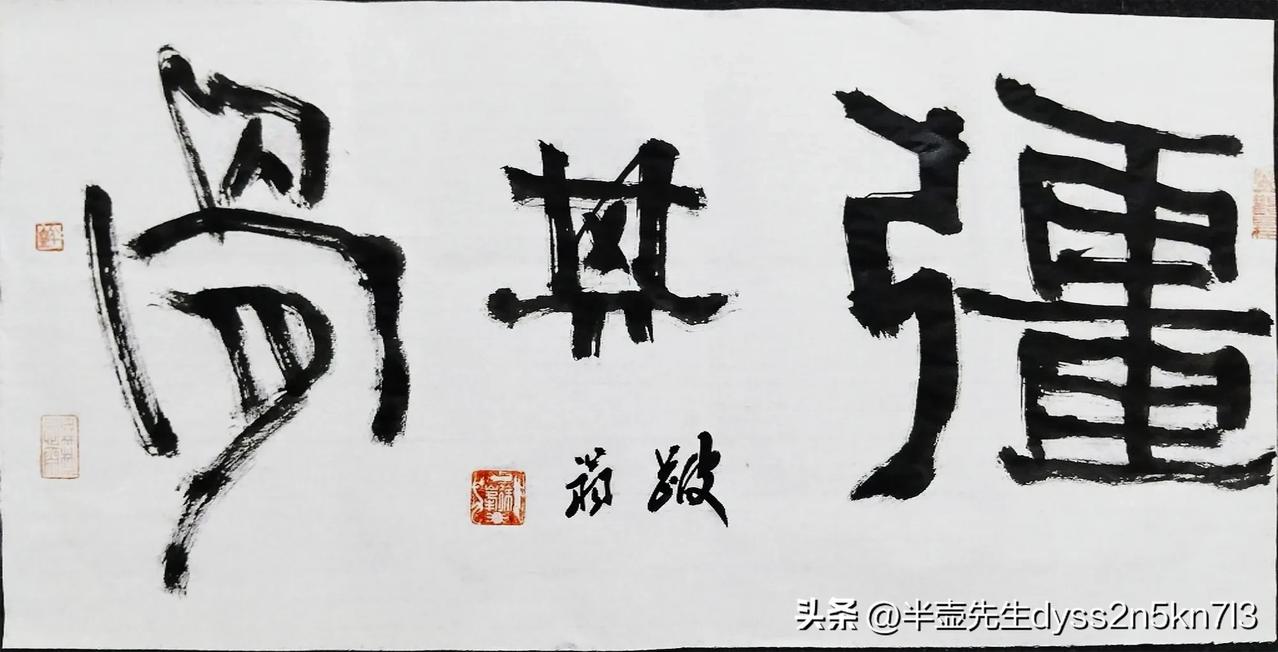 彊其骨
翁
头条 @半壶先生dyss2n5kn7l3